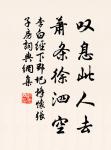 叹息此人去
萧条徐泗空
李白经下邳圯桥怀张
子房词典网集